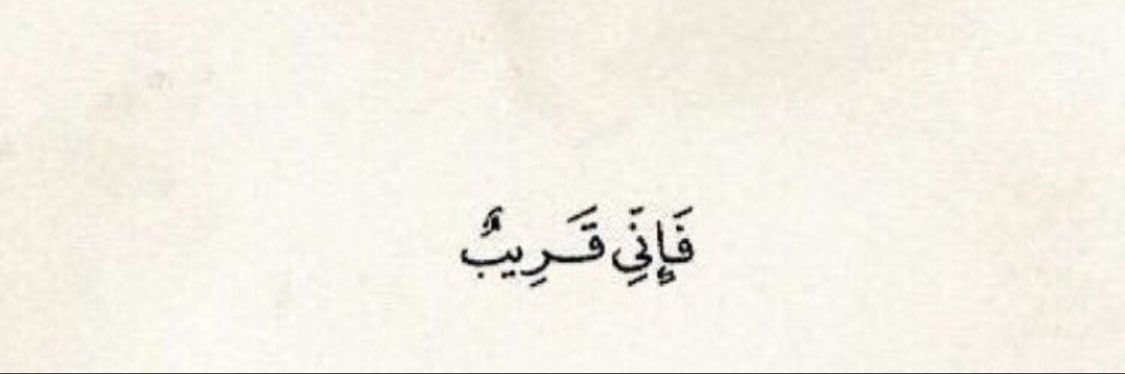 فَإِنِّي قَرِيبٌ